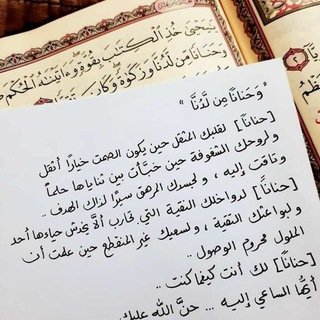 يَٰيَحْيَىٰ خُذِ ٱلْكِتَٰبَ بِقُوَّةٍ وَءَاتَيْنَٰهُ ٱلْحُكْمَ
وَحَنَانًا مِّن لَّدُنَّا وَزَكَوٰةً وَكَانَ تَقِيًّا
"وَحَنَانًا مِن لَّدُنَّا"
[حنانًا] لقلبك المثقل حين يكون الصمت خيارًا أثقل
ولروحك الشغوفة حين خبَّأت بين ثناياها حلمًا
وتاقت إليه ، ولجسدك المرهق سيرًا لذاك الهدف ..
[حنانًا] لدواخلك النقية التي تحارب ألَّا يخدش حياءها أحد
ولبواعثك النقية ، ولسعيك غير المنقطع حين علمت أن
الملول محروم الوصول ..
[حنانًا] لك أنت كيفما كنت ..
أيُّها الساعي إليه ... حنَّ الله عليك